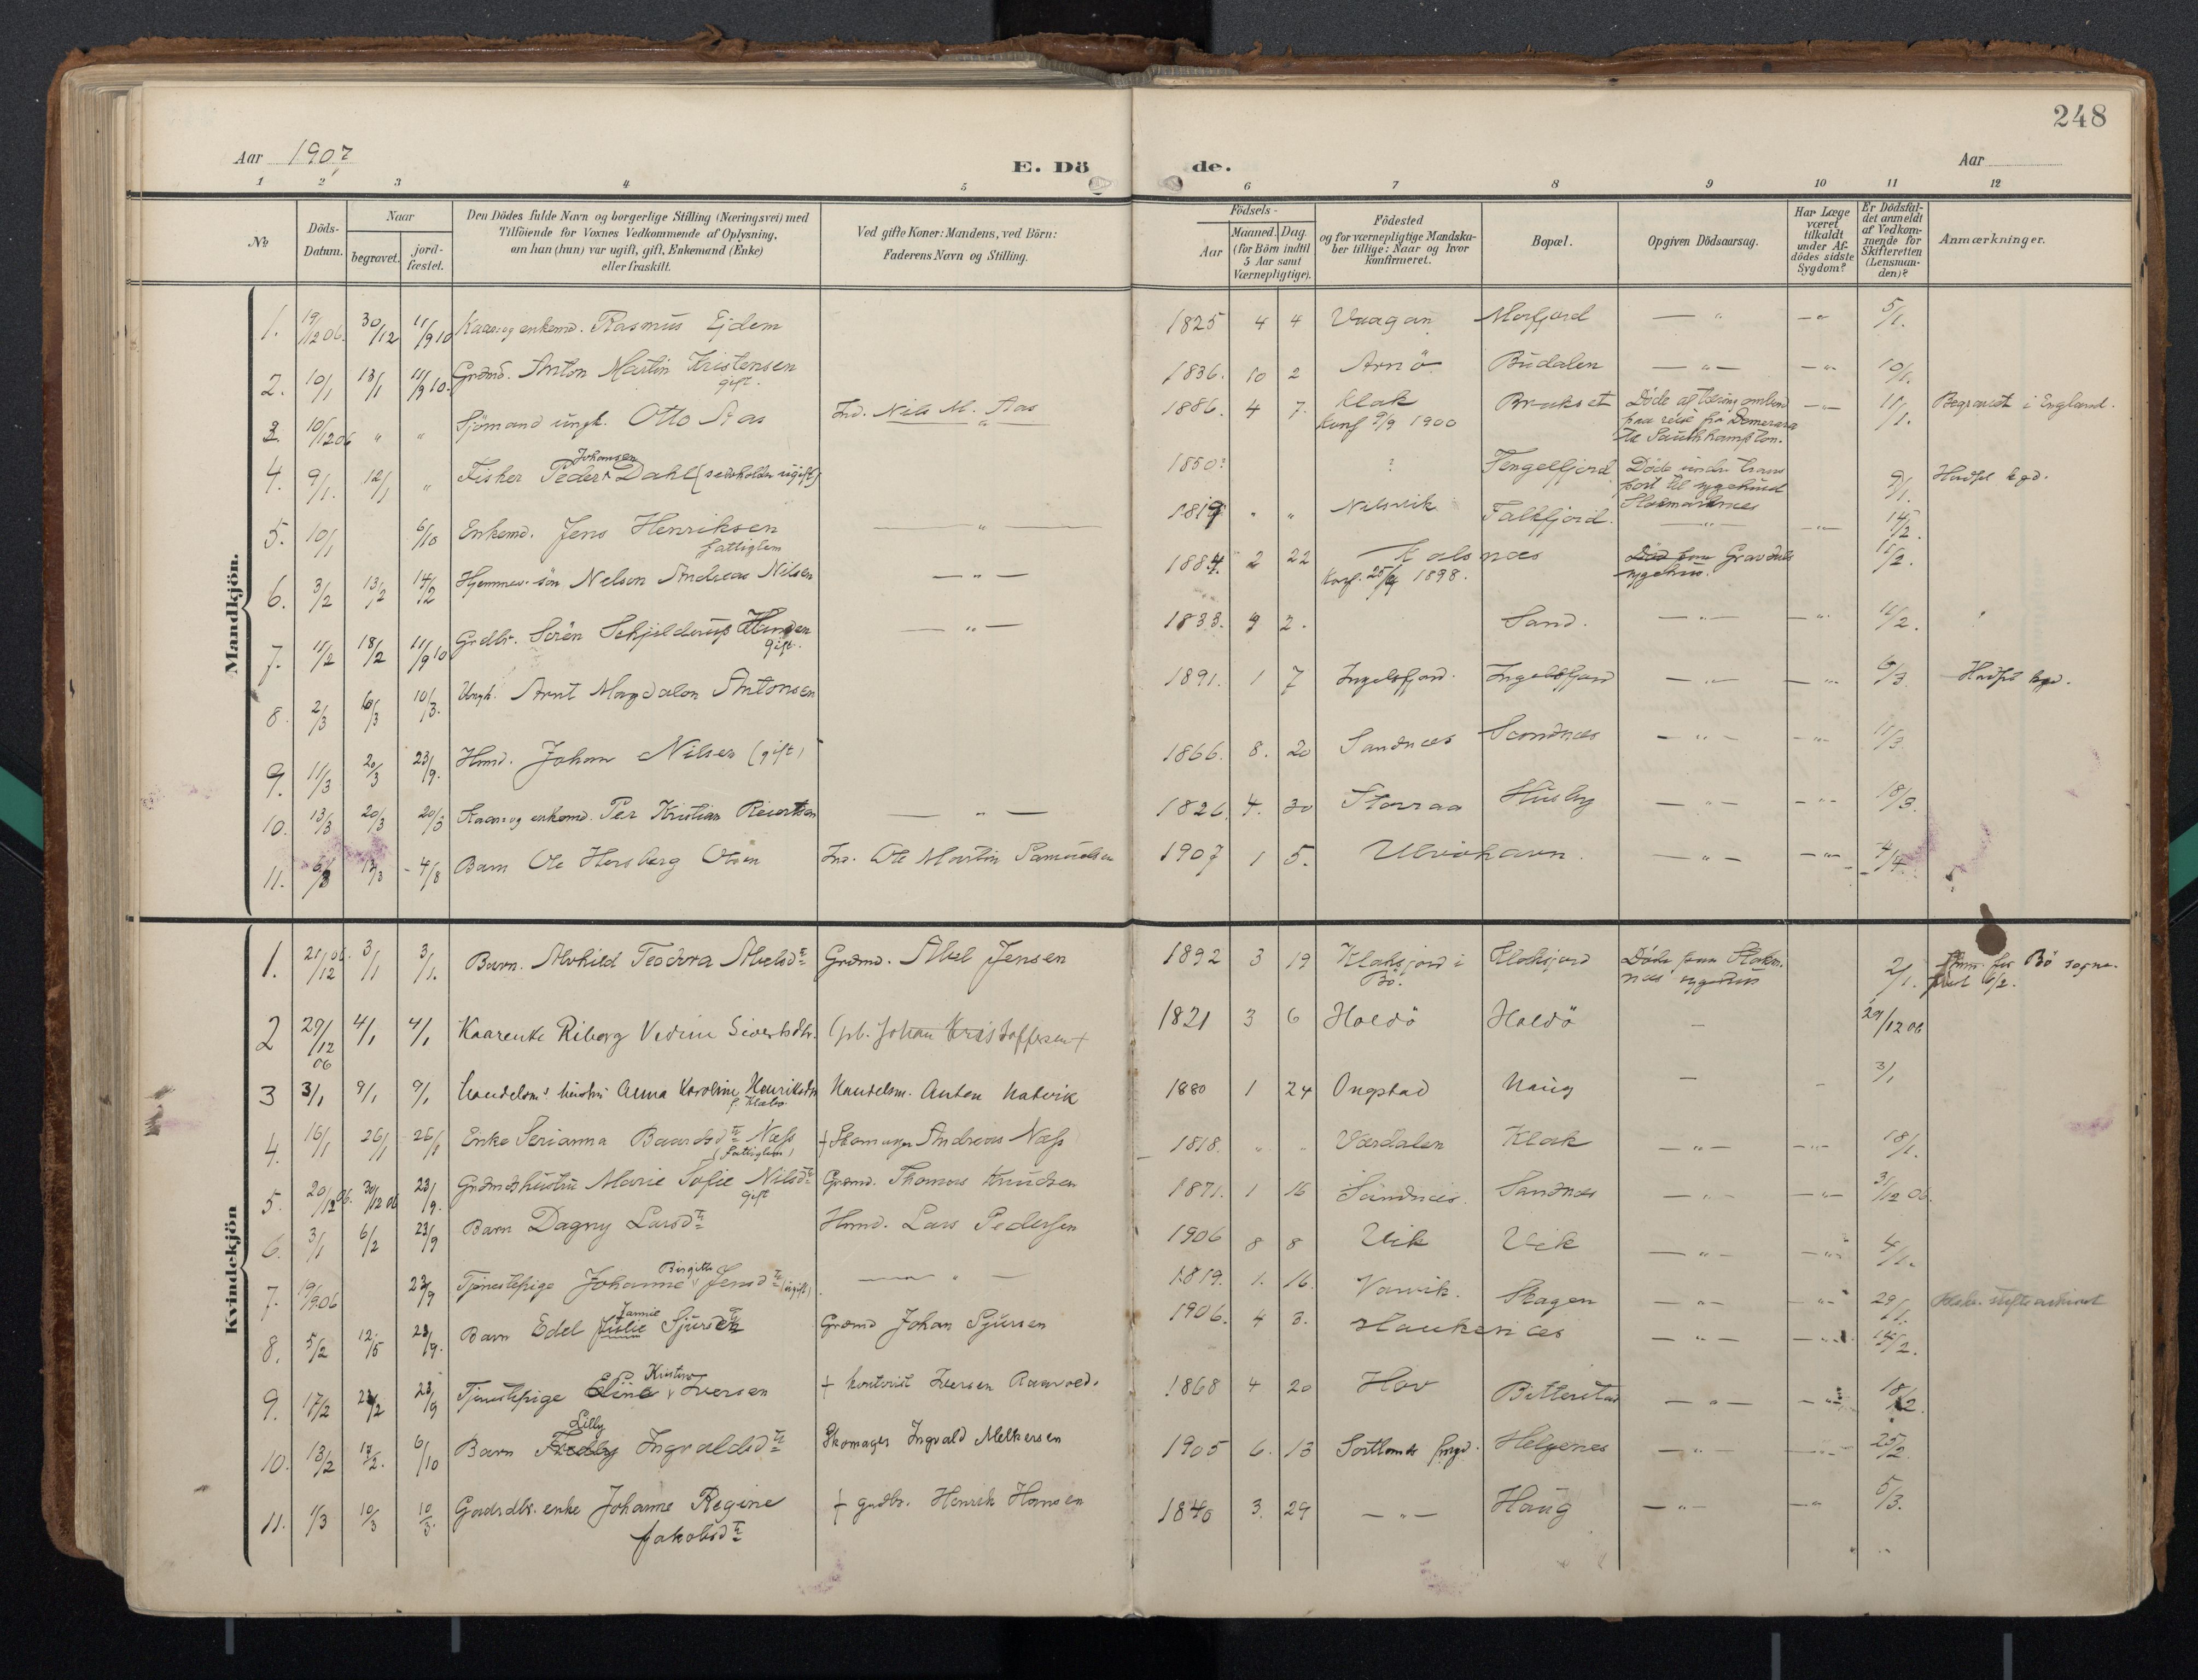 248
Aar 1907
E. Döde.
Aar
1 2 3 4 5 6 7 8 9 10 11 12
№
Döds-Datum.
Naar
begravet.
jord-fæstet.
Den Dödes fulde Navn og borgerlige Stilling (Næringsvei) med
Tilföiende for Voxnes Vedkommende af Oplysning,
om han (hun) var ugift, gift, Enkemand (Enke)
eller fraskilt.
Ved gifte Koner: Mandens, ved Börn:
Faderens Navn og Stilling.
Födsels-
Aar
Maaned. Dag.
(for Börn indtil
5 Aar samt
Værnepligtige).
Födested
og for værnepligtige Mandska-
ber tillige: Naar og hvor
konfirmeret.
Bopæl.
Opgiven Dödsaarsag.
Har Læge
været
tilkaldt
under Af-
dödes sidste
Sygdom?
Er Dödsfal-
det anmeldt
af Vedkom-
mende for
Skifteretten
(Lensman-
den)?
Anmærkninger.
Mandkjön.
1. 19/12 06. 30/12 11/9 10 Kaarog enkemd. Rasmus Ejdem 1825 4 4 Vaagan Morfjord — " — " 5/1.
2. 10/1 13/1 11/9 10. Grdmd. Anton Martin Kristensen 1836. 10 2 Arnö Budalen — " — — " 10/1.
gift.
3. 10/12 06 " " Sjömand ungk. Otto Aas Ind. Nils M. Aas 1886. 4 7. Klak Brukset Döde af tæring ombord — " — 11/1. Begravet i England.
Konf 9/9 1900 paa reise fra Demerara
til Southhampton.
4. 9/1. 12/1 " Fisker Peder Johansen Dahl (selvholden ugift) 1850? ? Fengelfjord Döde under trans
port til sygehuset 9/1. Hadsel kgd.
Stokmarknes
5. 10/1 6/10 Enkemd. Jens Henriksen — " — 1819 " " Nilsvik Falkfjord. — " — — " 14/2.
fattiglem
6. 3/2 13/2 14/2 Hjemmev. sön Nelson Andreas Nilsen — " — 1884. 2 22 Kalsnæs Död paa Gravdals 15/2.
Konf. 25/9 1898. sygehus.
7. 11/2 18/2 11/9 10 Grdbr. Sören Schjelderup Hansen — " — 1833. 9 2. Sand. — " — — " 12/2.
gift.
8. 2/3 10/3 10/3. Ungk. Arnt Magdalon Antonsen 1891. 1 7 Ingelsfjord. Ingelsfjord — " — — " 6/3 Hadsel kgd.
9. 11/3 20/3 23/9. Hmd. Johan Nilsen (gift) 1866. 8. 20 Sandnæs Sandnæs — " — — " — 11/3
10. 13/3 20/3 20/3 Kaarog enkemd. Per Kristian Reiertsen — " — 1826. 4. 30 Storraa Husby — " — — " — 18/3.
11. 6/3 13/3 4/8 Barn Ole Hersberg Olsen Ind. Ole Martin Samuelsen 1907 1 5. Ulvohavn. — " — — " — 4/4.
Kvindekjön
1. 21/12 06. 3/1 3/1. Barn. Alvhild Teodora Abelsdtr Grdmd. Abel Jensen 1892 3 19 Klaksjord i Klaksjord Döde paa Stokm. 2/1. Bö sogne-
Bö. næs sygehus
2 29/12 06 4/1 4/1 Kaarenke Riborg Vedine Sivertsdtr. (pb. Johan Kristoffersen + 1821 3 6 Holdö Holdö — 29/12 06
3 3/1 9/1 9/1 Handelsm's hustru Anna Karoline Henriksdtr Handelsm. Anton Hatvik 1880 1 24 Ongstad Haug — 3/1
4. 16/1 26/1 26/1 Enke Serianna Baardsdtr Næss + Skomager Andreas Næss 1818. " " Værdalen Klak — " — — " — 18/1.
(fattiglem)
5. 20/12 06. 30/12 06 23/9. Grdmdshustru Marie Sofie Nilsdtr Grdmd. Thomas Knudsen 1871. 1 16 Sandnæs. Sandnæs — " — — " — 31/12 06.
gift
6. 3/1 6/2 23/9 Barn Dagny Larsdtr Hmd. Lars Pedersen 1906 8 8 Vik Vik — " — — " 4/1.
7. 19/1 906 23/9 Tjenestepige Johanne Birgitte Jensdtr (ugift) — " — 1819. 1. 16. Vanvik. Skagen — " — — " 29/1.
8. 5/2 12/5 23/9. Barn Edel Jannie Julie Sjursdtr Grdmd Johan Sjursen 1906. 4 3. Haukenæs — " — — " 14/2.
9. 17/2 23/2 23/9 Tjenestepige Eline Kristine Iversen + kontorist Iversen 1868 4 20 Hov Bitterstad — " — — " 18/2.
10. 13/2 17/2. 6/10 Barn Lilly Ingvaldsdtr Skomager Ingvald Melkersen 1905 6. 13 Sortlands Helgenes — " — — " — 25/2
11. 1/3 10/3 10/3. Gaardbr. enke Johanne Regine + grdbr. Henrik Hansen 1840 3. 29 — " — Haug — " — — " 5/3.
Jakobsdtr